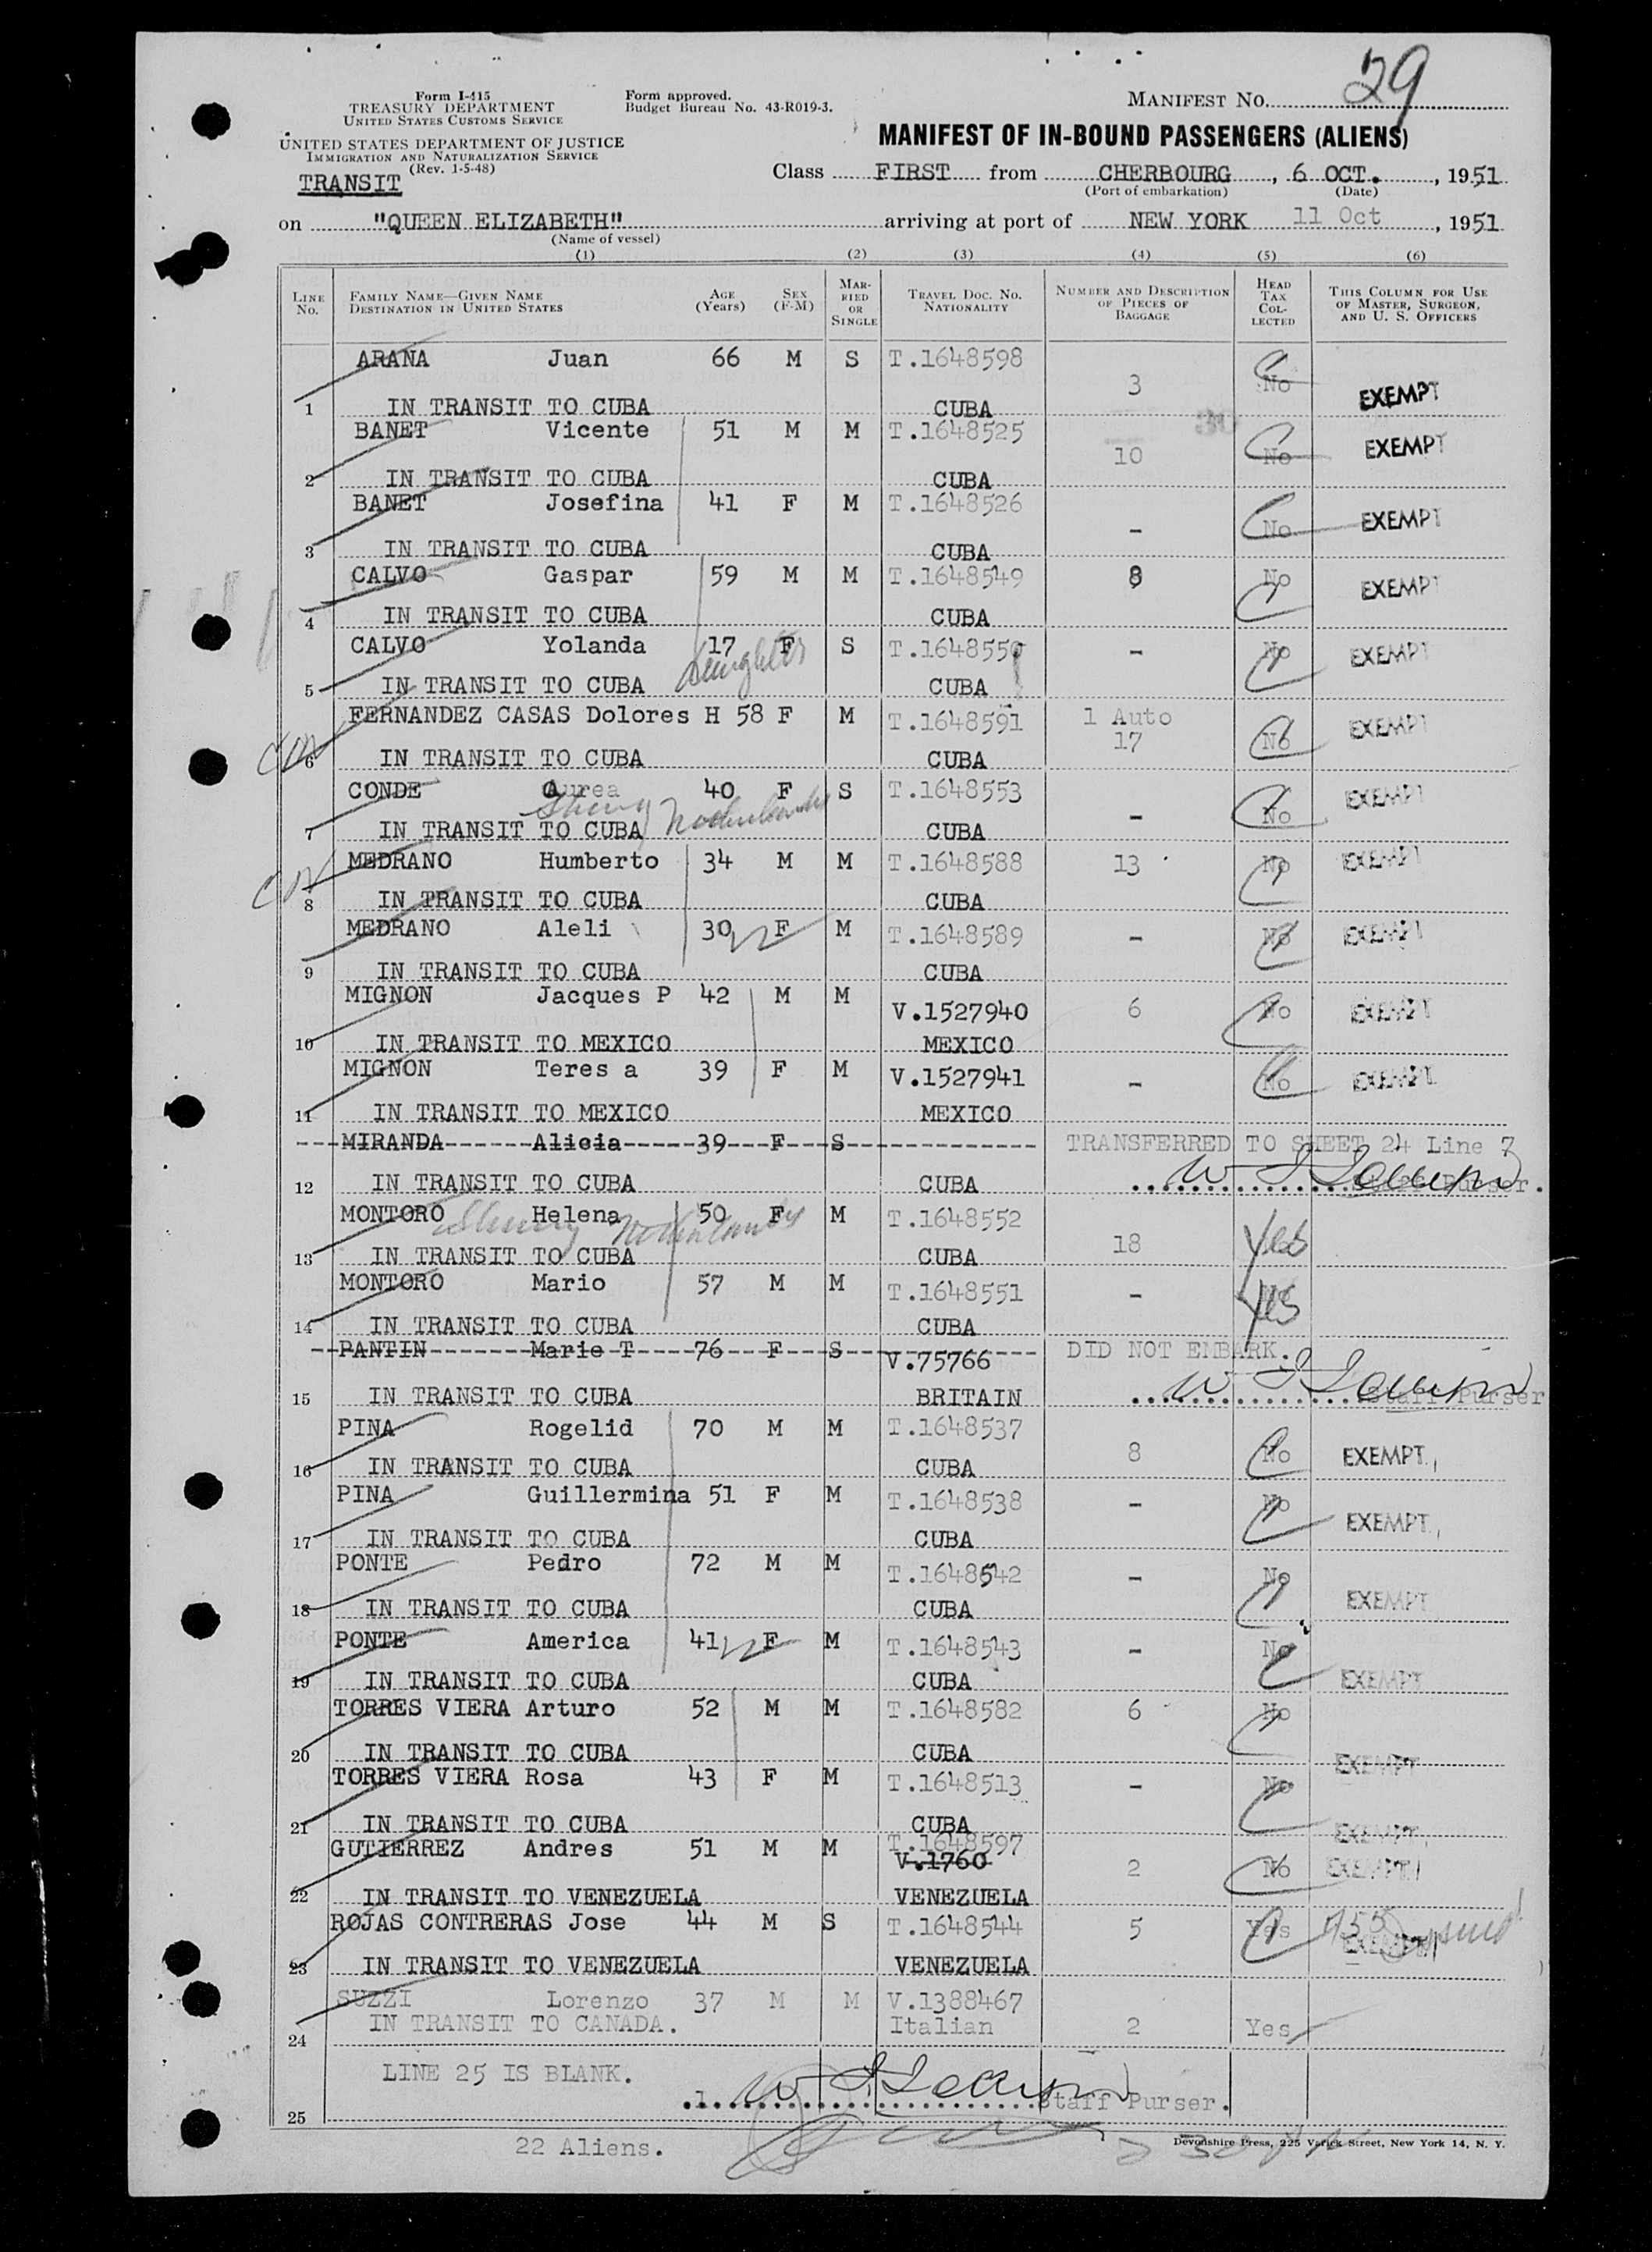 29
Form I-415
TREASURY DEPARTMENT
UNITED STATES CUSTOMS SERVICE
Form approved.
Budget Bureau No. 43-R019-3.
MANIFEST NO.
UNITED STATES DEPARTMENT OF JUSTICE
IMMIGRATION AND NATURALIZATION SERVICE
(Rev. 1-5-48)
TRANSIT
MANIFEST OF IN-BOUND PASSENGERS (ALIENS)
Class FIRST from CHERBOURG, 6 OCT., 1951
(Port of embarkation) (Date)
on "QUEEN ELIZABETH" arriving at port of NEW YORK 11 Oct, 1951
(Name of vessel)
(1) (2) (3) (4) (5) (6)
LINE NO. FAMILY NAME—GIVEN NAME DESTINATION IN UNITED STATES AGE (Years) SEX (F-M) MARRIED OR SINGLE TRAVEL DOC. NO. NATIONALITY NUMBER AND DESCRIPTION OF PIECES OF BAGGAGE HEAD TAX COLLECTED THIS COLUMN FOR USE OF MASTER, SURGEON, AND U. S. OFFICERS
ARANA Juan 66 M S T.1648598 3 No EXEMPT
1 IN TRANSIT TO CUBA CUBA
BANET Vicente 51 M M T.1648525 10 No EXEMPT
2 IN TRANSIT TO CUBA CUBA
BANET Josefina 41 F M T.1648526 - No EXEMPT
3 IN TRANSIT TO CUBA CUBA
CALVO Gaspar 59 M M T.1648549 8 No EXEMPT
4 IN TRANSIT TO CUBA CUBA
CALVO Yolanda 17 F S T.1648550 - No EXEMPT
daughter
5 IN TRANSIT TO CUBA CUBA
FERNANDEZ CASAS Dolores H 58 F M T.1648591 1 Auto 17 No EXEMPT
6 IN TRANSIT TO CUBA CUBA
CONDE Aurea 40 F S T.1648553 - No EXEMPT
7 IN TRANSIT TO CUBA CUBA
MEDRANO Humberto 34 M M T.1648588 13 No EXEMPT
8 IN TRANSIT TO CUBA CUBA
MEDRANO Aleli 30 F M T.1648589 - No EXEMPT
9 IN TRANSIT TO CUBA CUBA
MIGNON Jacques P 42 M M V.1527940 6 No EXEMPT
10 IN TRANSIT TO MEXICO MEXICO
MIGNON Teres a 39 F M V.1527941 - No EXEMPT
11 IN TRANSIT TO MEXICO MEXICO
MIRANDA Alicia 39 F S TRANSFERRED TO SHEET 24 Line 7
12 IN TRANSIT TO CUBA CUBA Staff Purser.
MONTORO Helena 50 F M T.1648552 18 Yes
13 IN TRANSIT TO CUBA CUBA
MONTORO Mario 57 M M T.1648551 - Yes
14 IN TRANSIT TO CUBA CUBA
PANTIN Marie T 76 F S V.75766 DID NOT EMBARK.
15 IN TRANSIT TO CUBA BRITAIN Staff Purser
PINA Rogelid 70 M M T.1648537 8 No EXEMPT
16 IN TRANSIT TO CUBA CUBA
PINA Guillermina 51 F M T.1648538 - No EXEMPT
17 IN TRANSIT TO CUBA CUBA
PONTE Pedro 72 M M T.1648542 - No EXEMPT
18 IN TRANSIT TO CUBA CUBA
PONTE America 41 F M T.1648543 - No EXEMPT
19 IN TRANSIT TO CUBA CUBA
TORRES VIERA Arturo 52 M M T.1648582 6 No EXEMPT
20 IN TRANSIT TO CUBA CUBA
TORRES VIERA Rosa 43 F M T.1648513 - No EXEMPT
21 IN TRANSIT TO CUBA CUBA
GUTIERREZ Andres 51 M M T.1648597 V.1760 2 No EXEMPT
22 IN TRANSIT TO VENEZUELA VENEZUELA
ROJAS CONTRERAS Jose 44 M S T.1648544 5 Yes EXEMPT
23 IN TRANSIT TO VENEZUELA VENEZUELA
SUZZI Lorenzo 37 M M V.1388467
IN TRANSIT TO CANADA. Italian 2 Yes
24
LINE 25 IS BLANK.
Staff Purser.
25
22 Aliens.
Devonshire Press, 225 Varick Street, New York 14, N. Y.